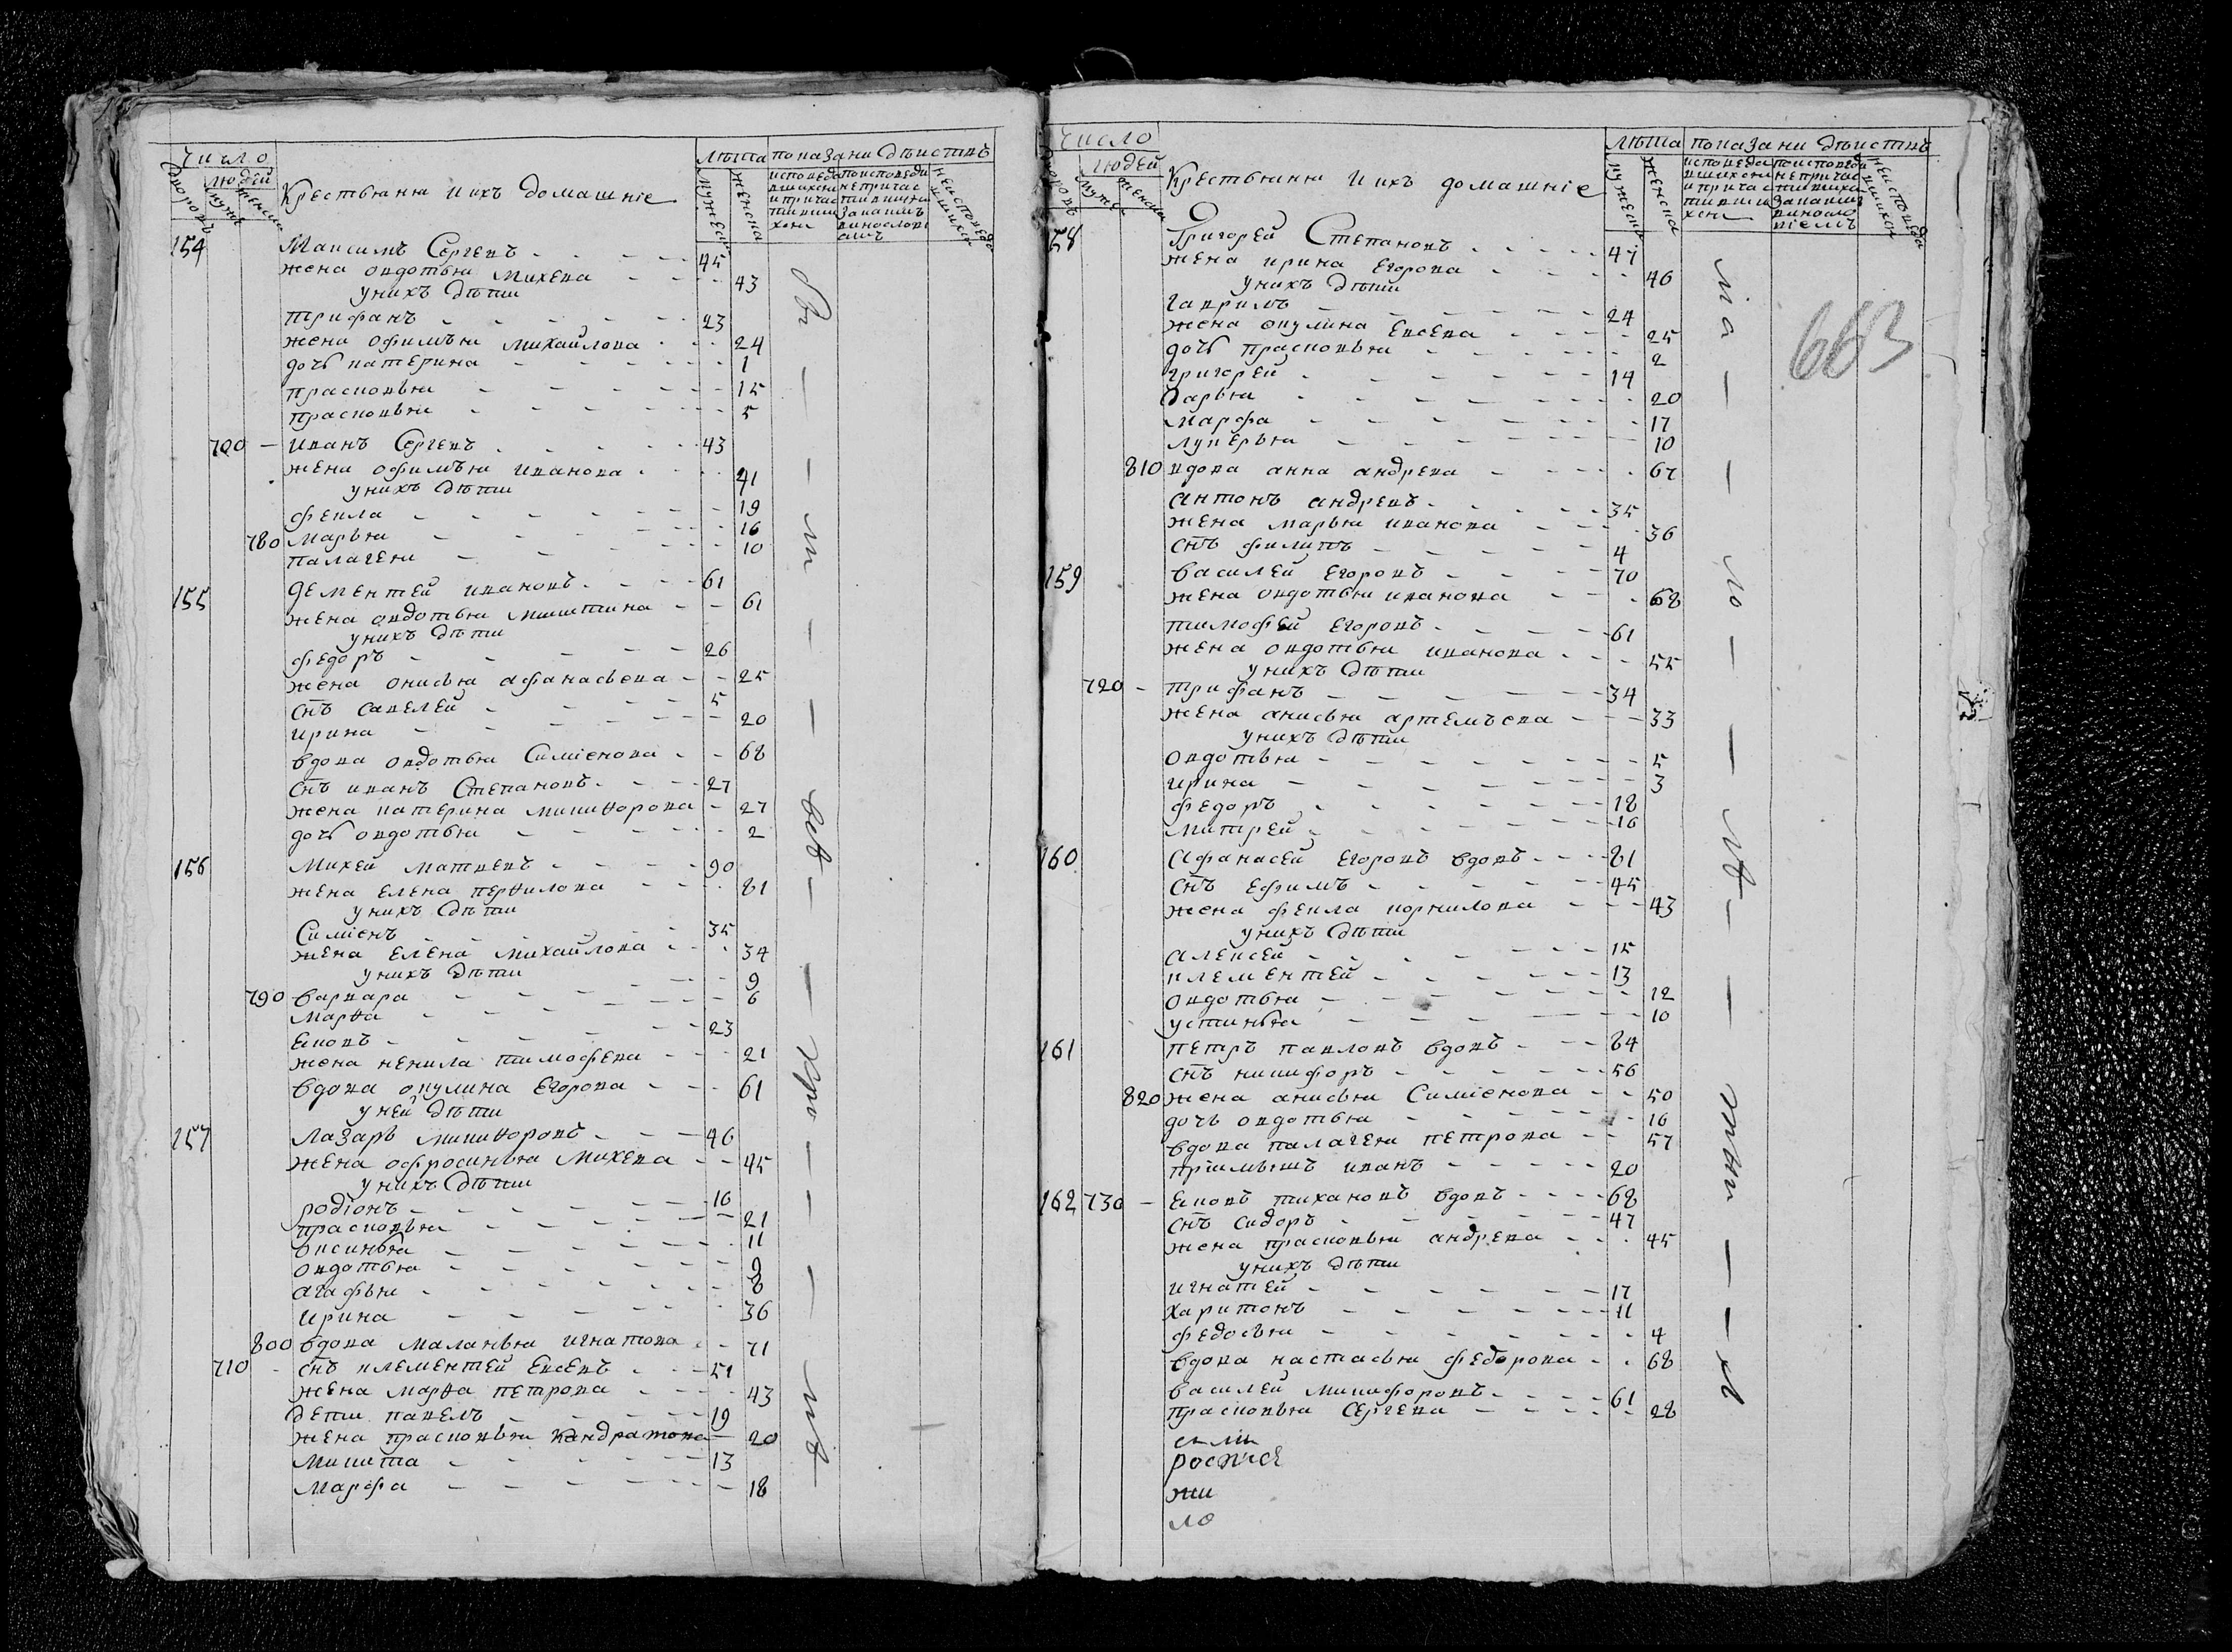 число
людей
дворовъ
мужес
женска
Крестьяня и ихъ домашніе
лѣта
мужеска
женска
показани дѣиствъ
исповеда
вшихся
и причас
тивши
хся
поисповеди
непричас
тившихъ
за какимъ
винослови
емъ
неисповеда
вшихся
154 Максимъ Сергеевъ 45
жена овдотья Михева 43
у нихъ дѣти
трифанъ 23
жена офимья михайлова 24
дочь катерина 1
прасковья 15
прасковья 5
700 иванъ Сергевъ 43
жена офимья иванова 41
у нихъ дѣти
фекла 19
780 марья 16
палагея 10
155 дементей ивановъ 61
жена овдотья микитина 61
у нихъ дѣти
федоръ 26
жена онисья афанасьева 25
снъ савелей 5
ирина 20
вдова овдотья Симіонова 68
снъ иванъ Степановъ 27
жена катерина микиѳорова 27
дочь овдотья 2
156 михей матвевъ 90
жена елена перѳилова 81
у нихъ дѣти
Симіонъ 35
жена елена михайлова 34
у нихъ дѣти
790 варвара 9
марѳа 6
яковъ 23
жена ненила тимофева 21
вдова окулина Егорова 61
у ней дѣти
157 лазарь микиѳоровъ 46
жена офросинья михева 45
у нихъ дѣти
родіонъ 16
прасковья 21
оксинья 11
овдотья 9
агафья 8
ирина 36
800 вдова маланья игнатова 71
710 снъ клементей Евсевъ 51
жена марѳа петрова 43
дети павелъ 19
жена прасковья кандратова 20
микита 13
марфа 18
число
людей
дворовъ
мужес
женска
Крестьяня и ихъ домашніе
лѣта
мужеска
женска
показани дѣиствъ
исповеда
вшихся
и причас
тивши
хся
поисповеди
непричас
тивших
за каким
виносло
віемъ
неисповеда
вшихся
663
158 Григорей Степановъ 47
жена ирина Егорова 46
у нихъ дѣти
гаврилъ 24
жена окулина Евсева 25
дочь прасковья 2
григорей 14
дарья 20
марфа 17
лукерья 10
810 вдова анна андрева 67
антонъ андревъ 35
жена марья иванова 36
снъ филипъ 4
159 василей Егоровъ 70
жена овдотья иванова 68
тимофей Егоровъ 61
жена овдотья иванова 55
у нихъ дѣти
720 трифанъ 34
жена анисья артемъева 33
у нихъ дѣти
овдотья 5
ирина 3
федоръ 18
митрей 16
160 афанасей Егоровъ вдовъ 81
снъ ефимъ 45
жена фекла корнилова 43
у нихъ дѣти
алексей 15
клементей 13
овдотья 12
устинья 10
161 петръ павловъ вдовъ 84
снъ никифоръ 56
820 жена анисья Симіонова 50
дочь овдотья 16
вдова палагея петрова 57
пріимышъ иванъ 20
162 730 яковъ тихановъ вдовъ 68
снъ сидоръ 47
жена прасковья андрева 45
у нихъ дѣти
игнатей 17
харитонъ 11
федосья 4
вдова настасья федорова 68
василей микифоровъ 61
прасковья Сергева 28